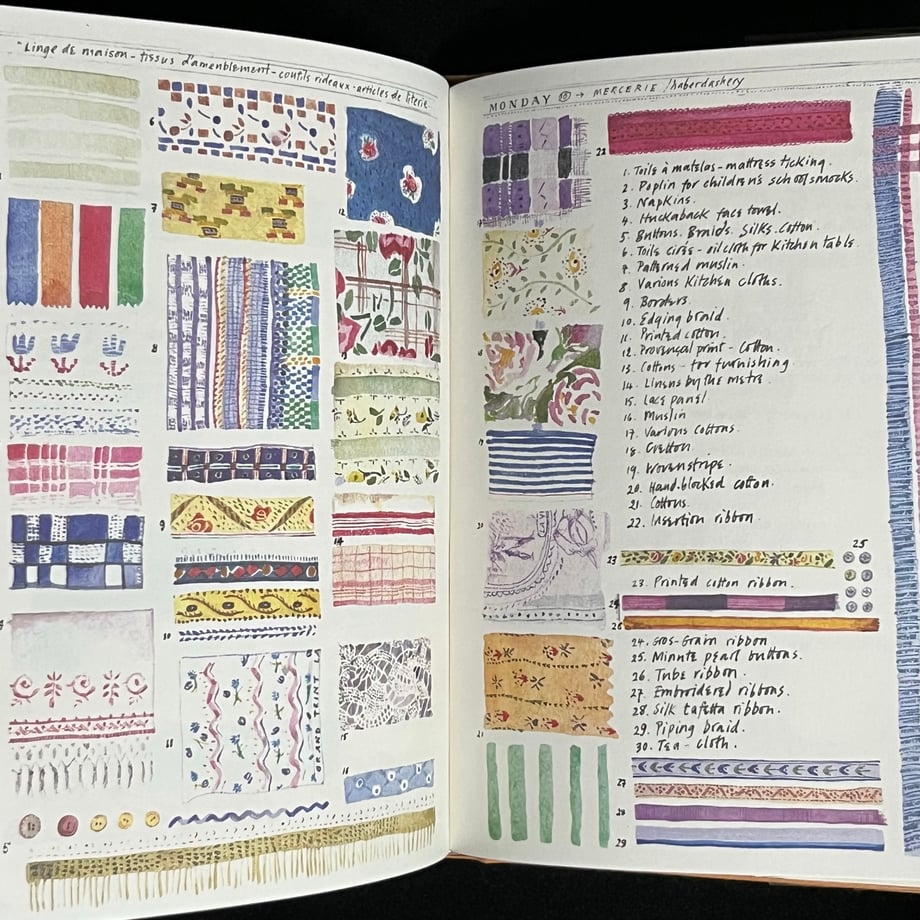 "Linge de maison - tissus d'ameublement - coutils rideaux - articles de literie -
6
7
8
9
10
11
12
14
15
16
GRAND TRIN
5
MONDAY 10 → MERCERIE / haberdashery
22
1. Toile à matelas - mattress ticking.
2. Poplin for children's school smocks.
3. Napkins.
4. Huckaback face towel.
5. Buttons. Braids. Silks. Cotton.
6. Toile cirée - oilcloth for kitchen table.
7. Patterned muslin.
8. Various kitchen cloths.
9. Borders.
10. Edging braid.
11. Printed cotton.
12. Provençal print - Cotton.
13. Cottons - for furnishing.
14. Linens by the metre.
15. Lace panel.
16. Muslin
17. Various Cottons.
18. Cretton.
19. Woven stripe.
20. Hand-blocked cotton.
21. Cottons.
22. Insertion ribbon.
19
20
21
23
25
23. Printed cotton ribbon.
24
26
24. Gros-Grain ribbon
25. Minute pearl buttons.
26. Tube ribbon.
27. Embroidered ribbons.
28. Silk taffeta ribbon.
29. Piping braid.
30. Tea-cloth.
27
28
29